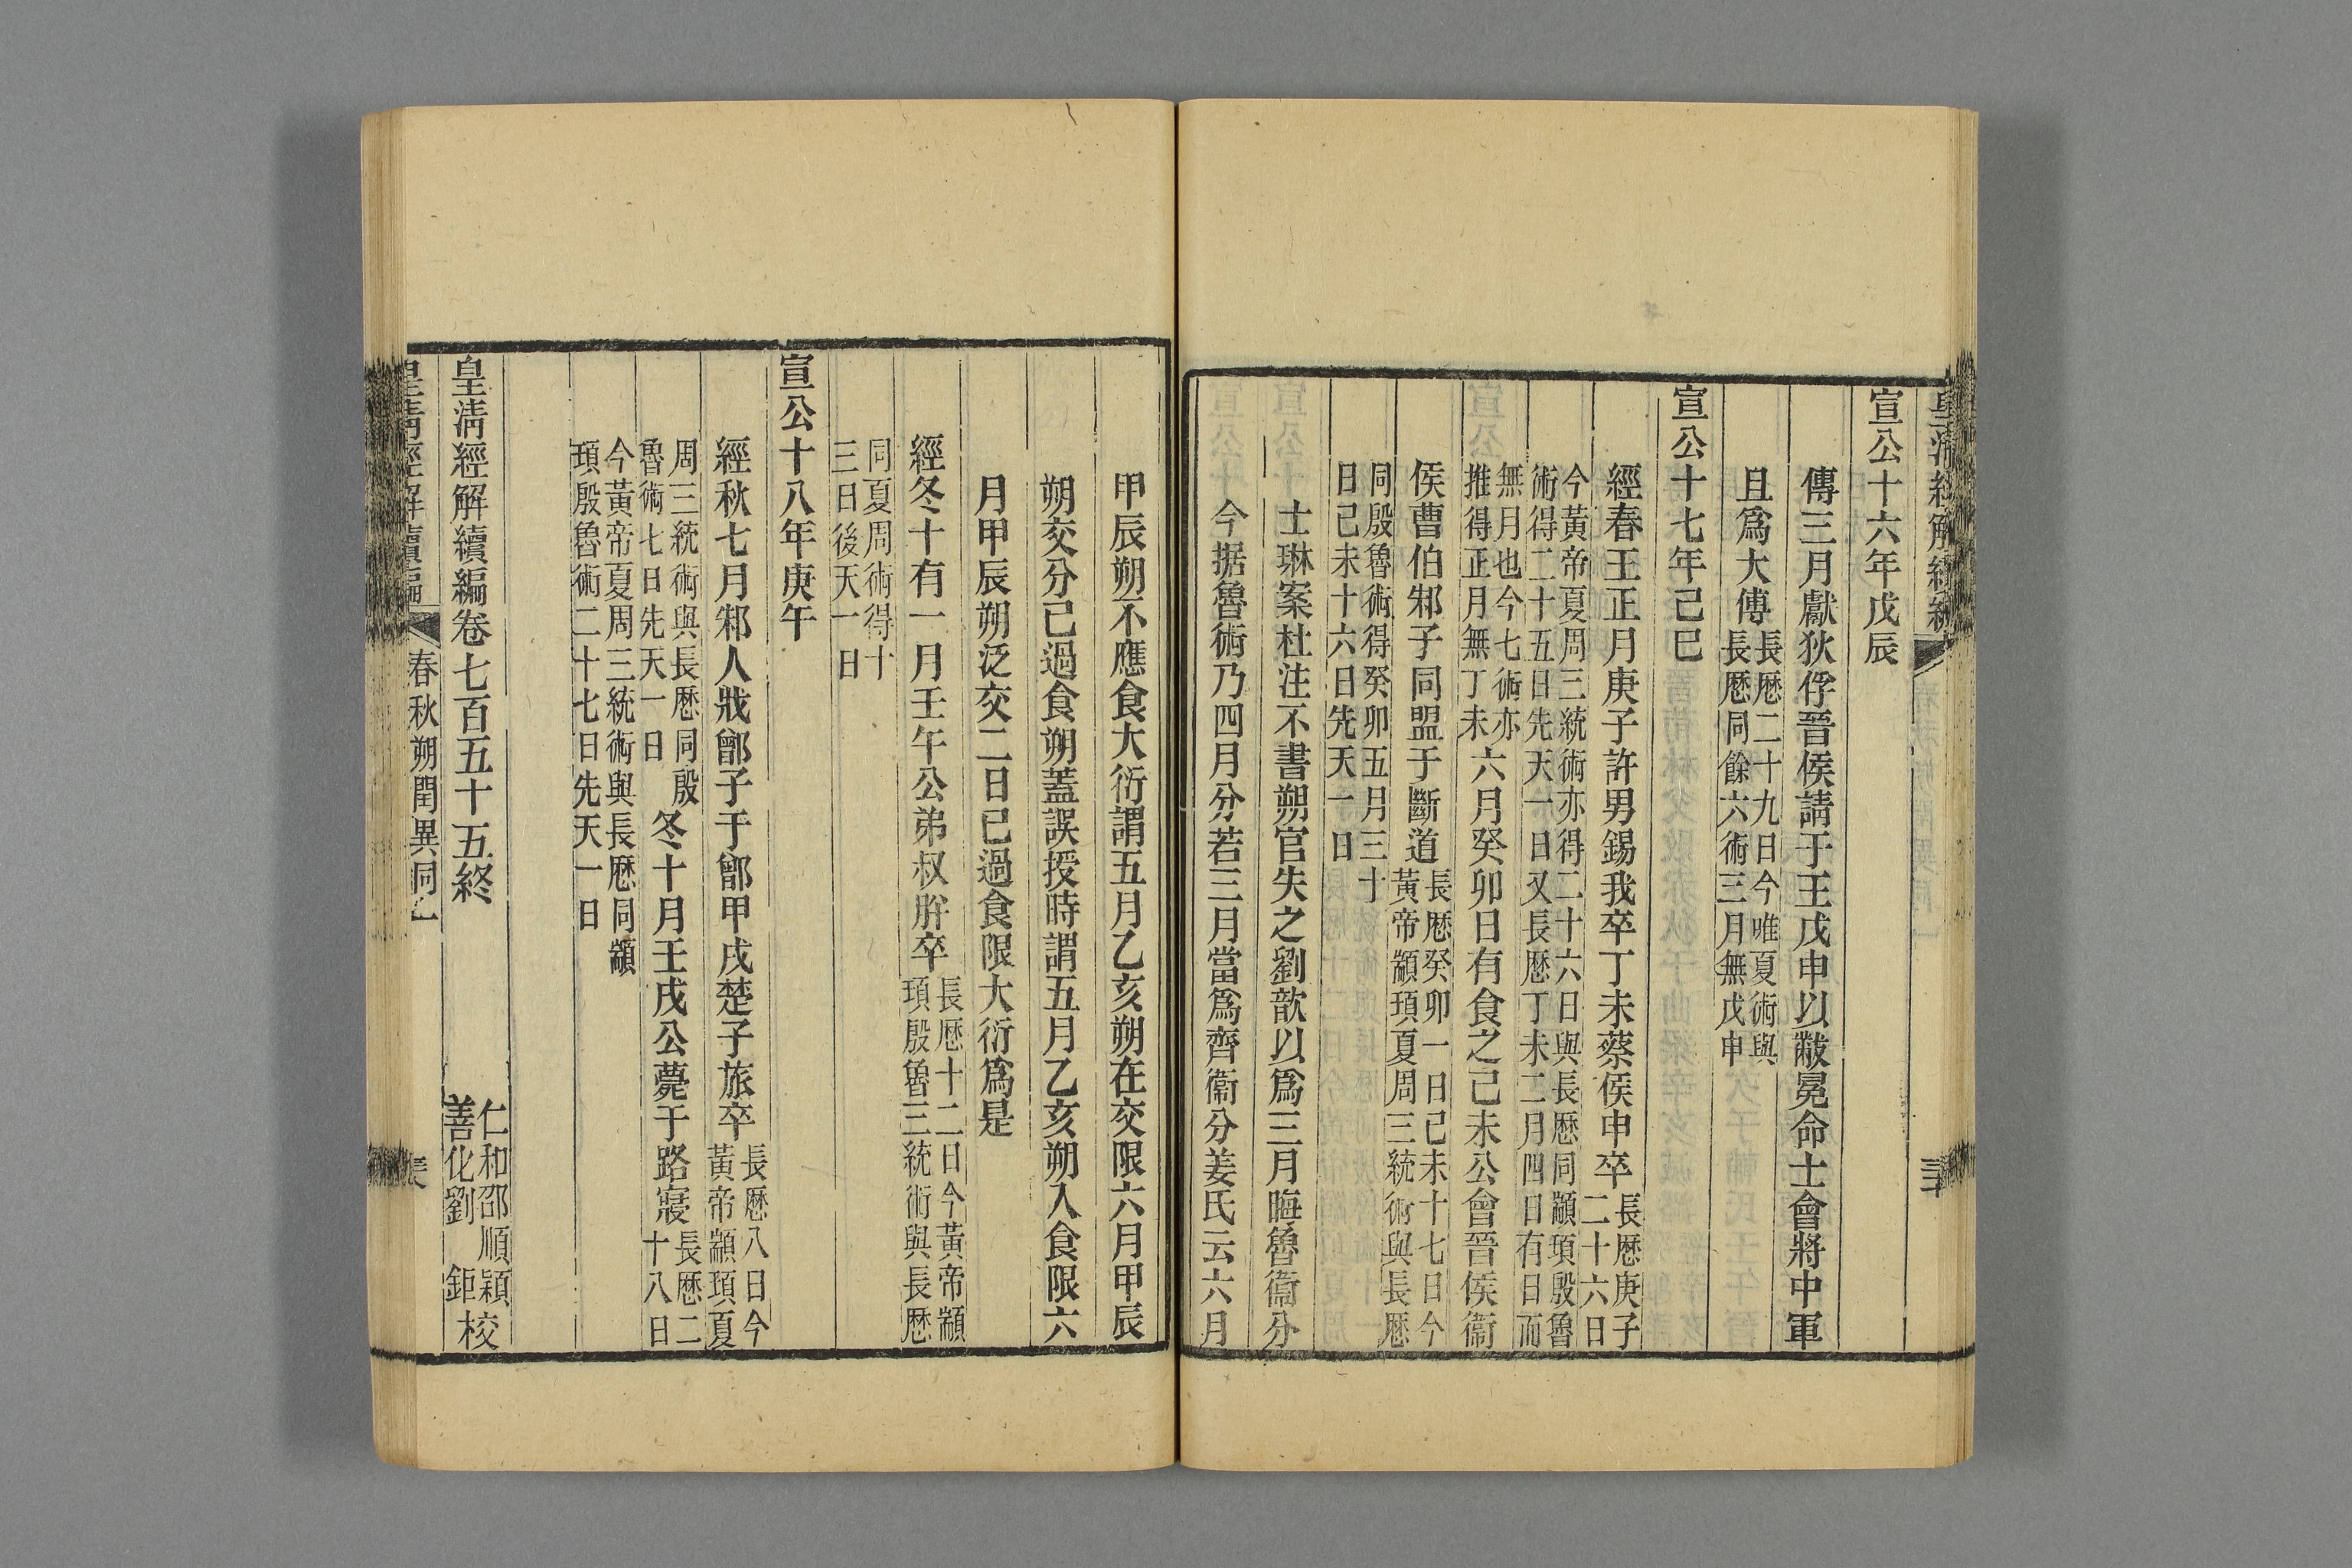 宣公十六年戊辰
傳三月獻狄俘晉侯請于王戊申以黻冕命士會將中軍
且爲大傅長厯二十九日今唯夏術與
長厯同餘六術三月無戊申
宣公十七年己巳
經春王正月庚子許男錫我卒丁未蔡侯申卒長厯庚子
二十六日
今黃帝夏周三統術亦得二十六日與長厯同顓頊殷魯
術得二十五日先天一日又長厯丁未二月四日有日而
無月也今七術亦
推得正月無丁未六月癸卯日有食之己未公會晉侯衞
侯曹伯邾子同盟于斷道長厯癸卯一日己未十七日今
黃帝顓頊夏周三統術與長厯
同殷魯術得癸卯五月三十
日己未十六日先天一日
士琳案杜注不書朔官失之劉歆以爲三月晦魯衞分
今据魯術乃四月分若三月當爲齊衞分姜氏云六月
甲辰朔不應食大衍謂五月乙亥朔在交限六月甲辰
朔交分已過食朔蓋誤授時謂五月乙亥朔入食限六
月甲辰朔泛交二日已過食限大衍爲是
經冬十有一月壬午公弟叔肸卒長厯十二日今黃帝顓
頊殷魯三統術與長厯
同夏周術得十
三日後天一日
宣公十八年庚午
經秋七月邾人戕鄫子于鄫甲戌楚子旅卒長厯八日今
黃帝顓頊夏
周三統術與長厯同殷
魯術七日先天一日冬十月壬戌公薨于路寢長厯二
十八日
今黃帝夏周三統術與長厯同顓
頊殷魯術二十七日先天一日
皇淸經解續編卷七百五十五終
仁和邵順穎
善化劉鉅校
皇淸經解續編
春秋朔閏異同